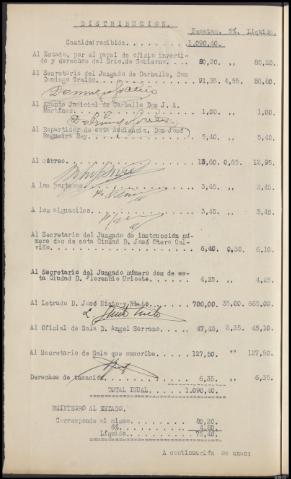 DISTRIBUCION.
Pesetas. 5% Líquido
Cantidad recibida. . . . . . . . . 1.090,60.
Al Estado, por el papel de oficio inverti-
do y derechos del Sric. de Gobierno. . . 80,20 ,, 80,20
Al Secretario del Juzgado de Carballo, Don
Domingo . . . . . 91,35 4,55 86,80
Al Perito Judicial de Carballo Don J. A.
Martinez. . . . . 1,00 ,, 1,00
Al Repartidor de esta Audiencia, Don José
Regueira Rey. . . . . 5,40 ,, 5,40
Al otros. . . . . 13,60 0,65 12,95
A los porteros. . . . . 3,45 ,, 3,45
A los alguaciles. . . . . 3,45 ,, 3,45
Al Secretario del Juzgado de instrucción nú-
mero dos de esta Ciudad D. José Otero Cal-
viño. . . . . 6,40 0,30 6,10
Al Secretario del Juzgado número dos de es-
ta Ciudad D. Florencio Urioste. . . . . 4,25 ,, 4,25
Al Letrado D. José . . . . 700,00 35,00 665,00
Al Oficial de Sala D. Angel Serrano. . . . 47,45 2,35 45,10
Al Secretario de Sala que suscribe. . . . . 127,50 ,, 127,50
Derechos de tasación. . . . . 6,35 ,, 6,35
TOTAL IGUAL. . . . . 1.090,60
REINTEGRO AL ESTADO.
Corresponde al mismo. . . . . 80,20
Líquido. . . . .
A continuación se unen: